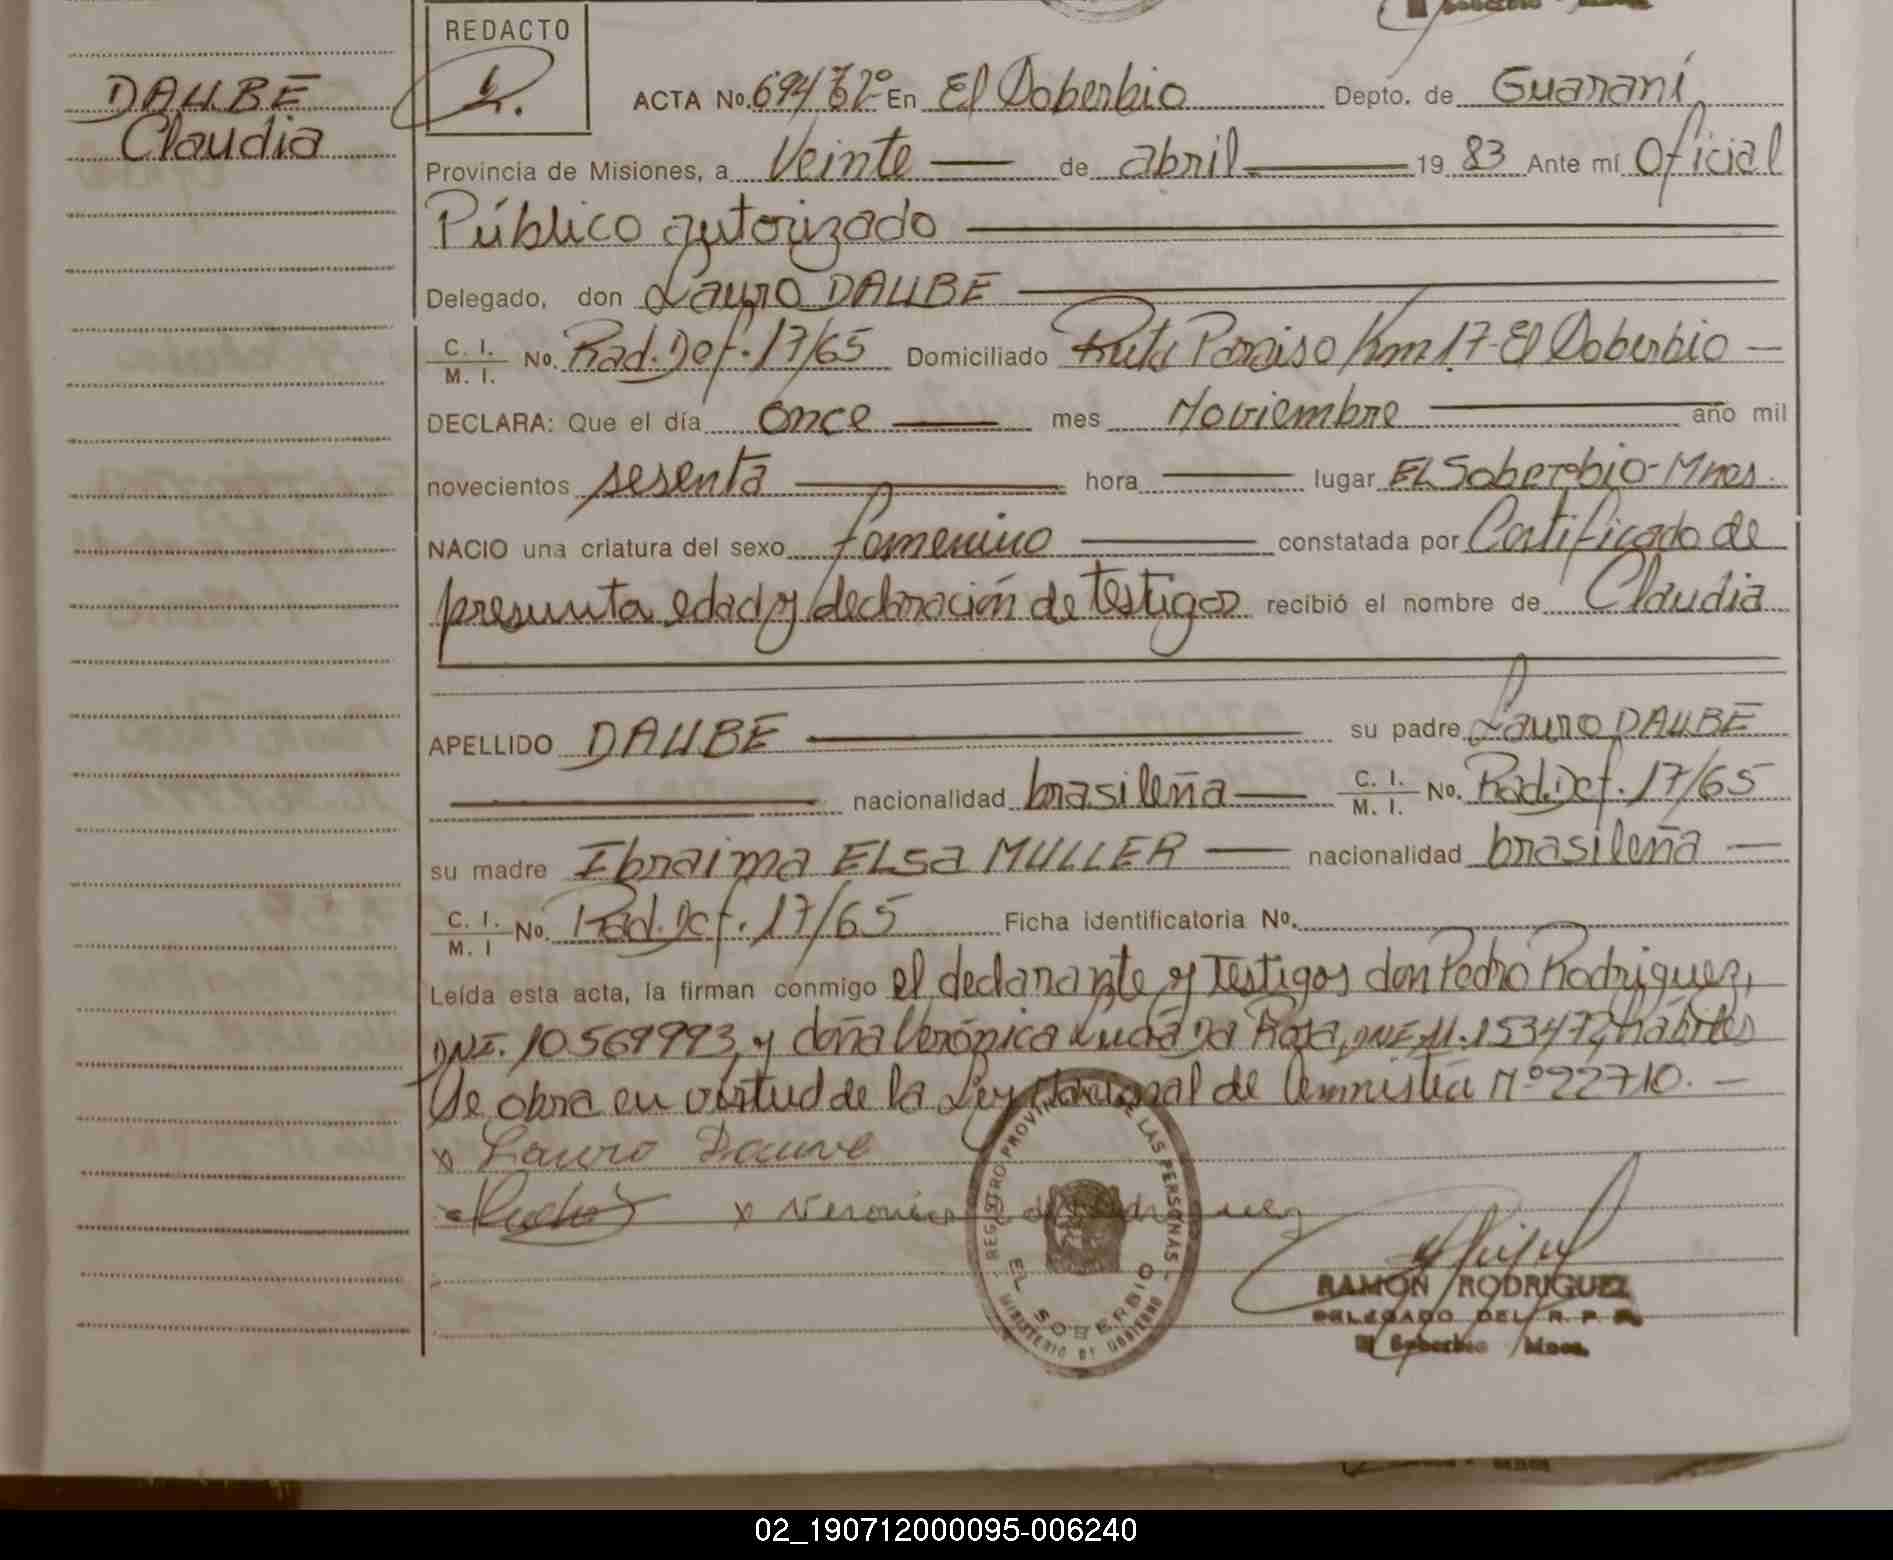 REDACTO
DAUBE
Claudia
ACTA No. 694 T2º En El Soberbio Depto. de Guaraní
Provincia de Misiones, a Veinte de abril 19 83 Ante mí Oficial
Público autorizado
Delegado, don Lauro DAUBE
C. I. / M. I. No. Rad. Def. 17/65 Domiciliado Ruta Paraiso Km 17 - El Soberbio
DECLARA: Que el día once mes Noviembre año mil
novecientos sesenta hora lugar EL Soberbio - Mnes.
NACIO una criatura del sexo femenino constatada por Certificado de
presunta edad y declaración de testigos recibió el nombre de Claudia
APELLIDO DAUBE su padre Lauro DAUBE
nacionalidad brasileña C. I. / M. I. No. Rad. Def. 17/65
su madre Ibraima ELSa MULLER nacionalidad brasileña
C. I. / M. I No. Rad. Def. 17/65 Ficha identificatoria No.
Leída esta acta, la firman conmigo el declarante y Testigos don Pedro Rodriguez,
DNI. 10.569993, y doña Verónica Lucía Da Rosa, DNI. 11.153472, hábiles
Se obra en virtud de la Ley Nacional de Amnistía Nº 22710. -
x Lauro Dauve
x Veronica d Rodriguez
REGISTRO PROVINCIAL DE LAS PERSONAS
EL SOBERBIO
MINISTERIO DE GOBIERNO
RAMON RODRIGUEZ
DELEGADO DEL R. P. P.
El Soberbio Mnes.
02_190712000095-006240